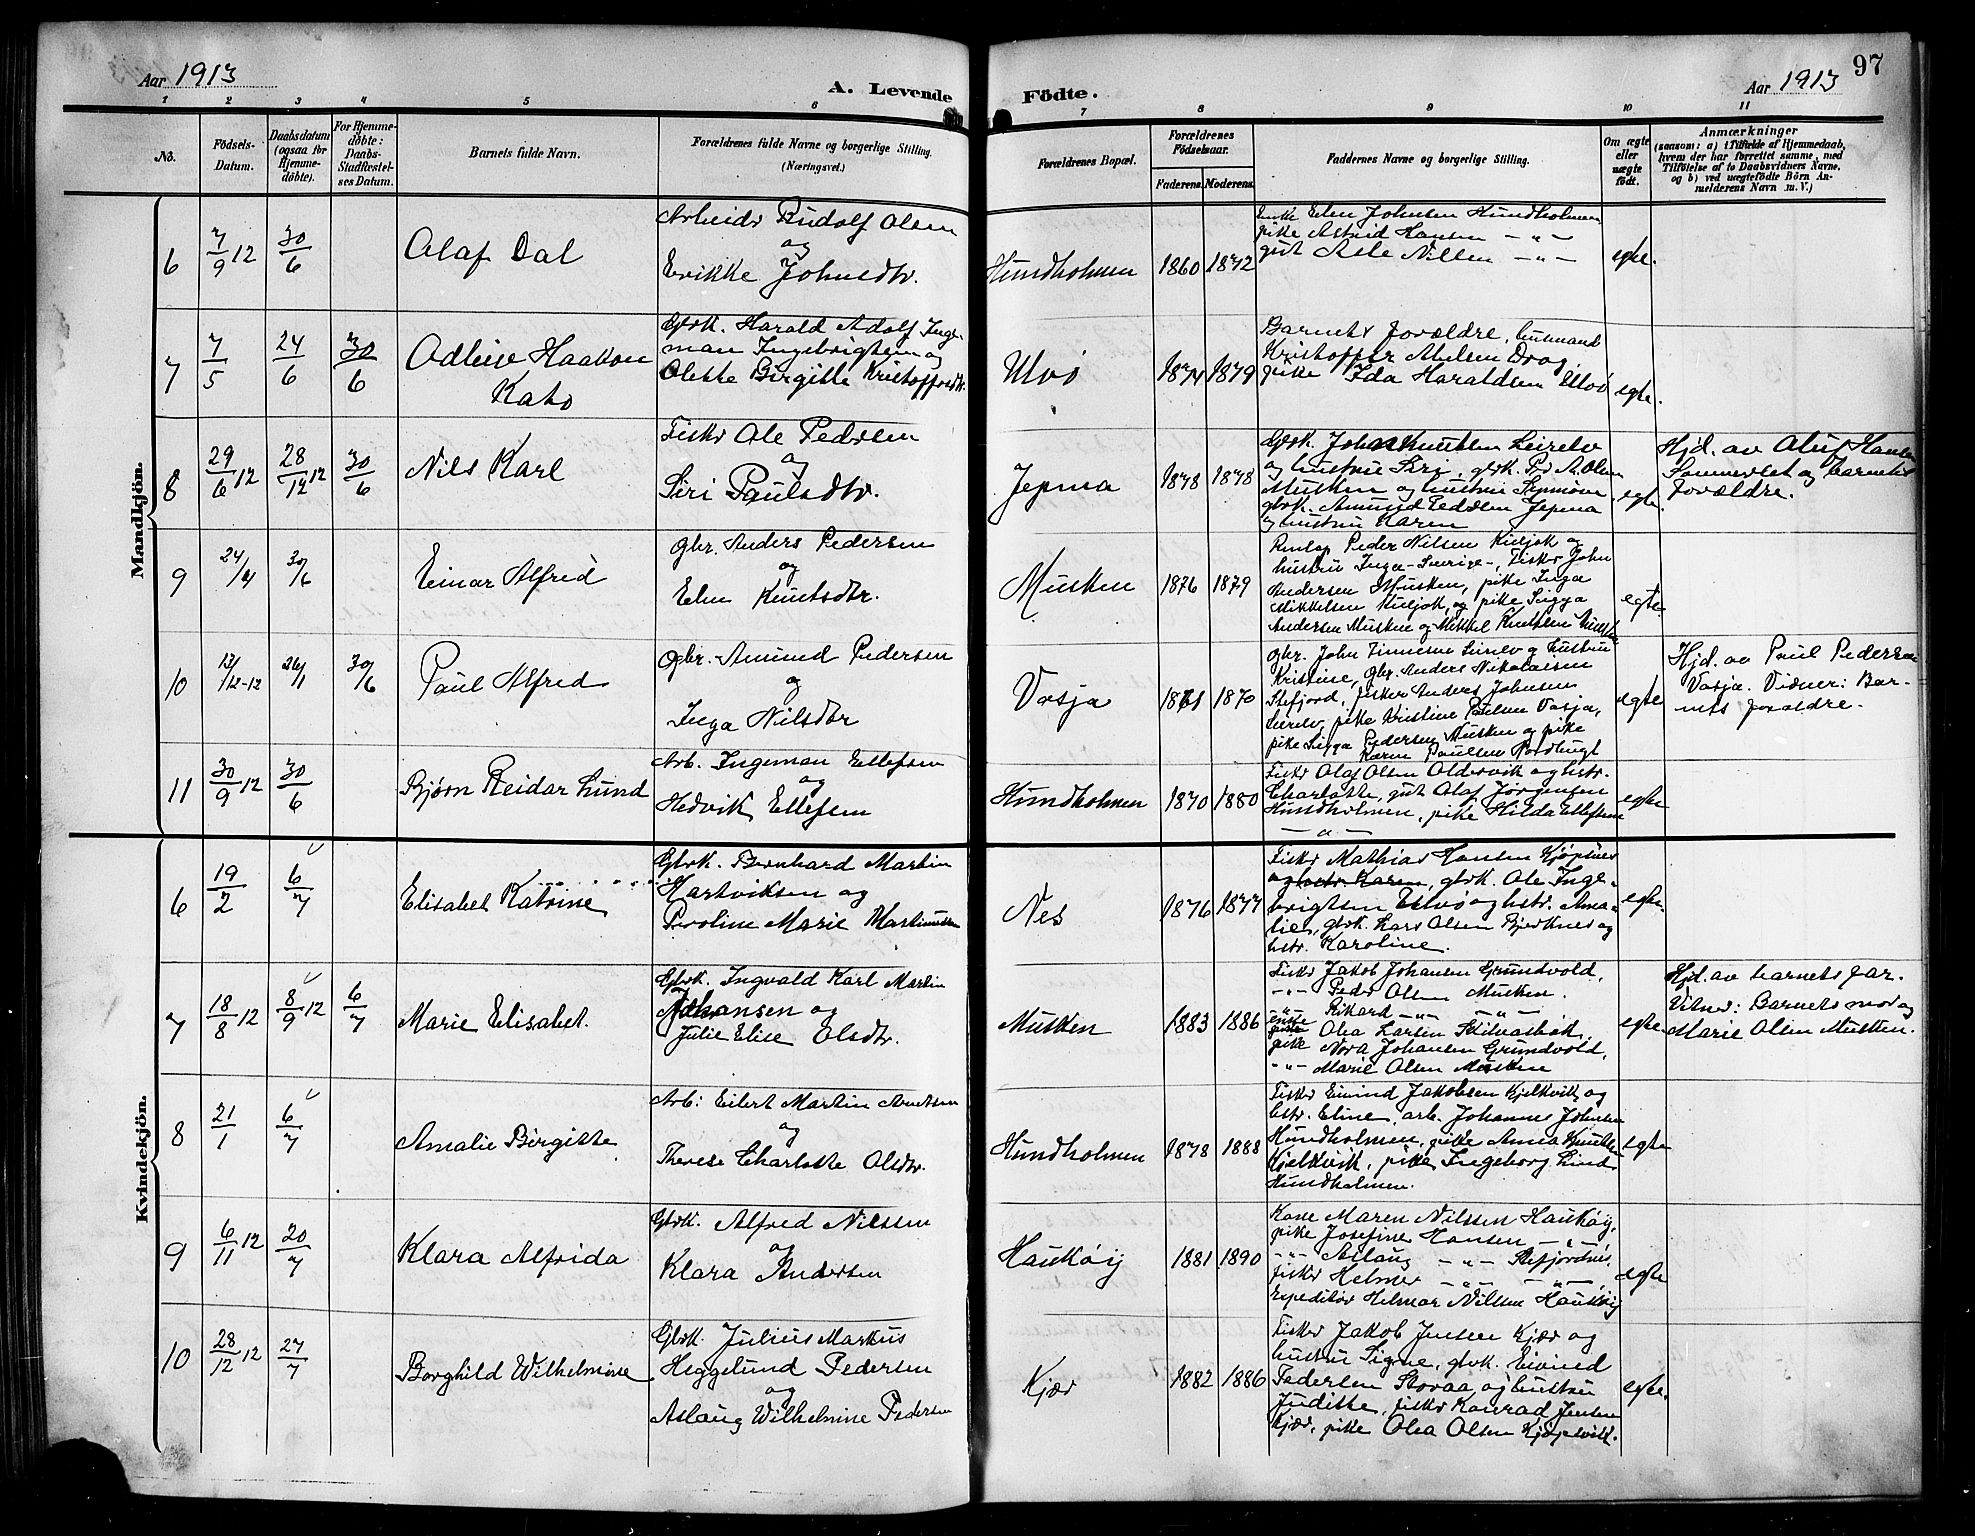 Aar 1913
A. Levende
Födte.
Aar 1913
97
1 2 3 4 5 6 7 8 9 10 11
No.
Födsels-
Datum.
Daabsdatum
(ogsaa for
Hjemme-
döbte).
For Hjemme-
döbte:
Daabs-
Stadfæstel-
ses Datum.
Barnets fulde Navn.
Forældrenes fulde Navne og borgerlige Stilling.
(Næringsvei.)
Forældrenes Bopæl.
Forældrenes
Födselsaar.
Faderens. Moderens.
Faddernes Navne og borgerlige Stilling.
Om ægte
eller
uægte
födt.
Anmærkninger
(saasom: a) i Tilfælde af Hjemmedaab,
hvem der har forrettet samme, med
Tilföielse af to Daabsvidners Navne,
og b) ved uægtefödte Börn An-
melderens Navn m. V.)
Mandkjön.
6 7/9 12 30/6
Olaf Dal
Arbeider Rudolf Olsen
og
Erikke Johnsdtr.
Hundholmen 1860 1872
Enke Elen Johnsen Hundholmen
pike Astrid Hansen — " —
gut Asle Nilsen — " —
egte.
7 7/5 24/6 30/6
Haakon
Kato
Gbrk. Harald Adolf Inge-
man Ingebrigtsen og
Olette Birgitte Kristoffersdtr.
Ulvö 1874 1879
Barnets forældre, 
Kristoffer Abelsen Drag,
pike Ida Haraldsen Ulvö
egte.
8 29/6 12 28/12 12 30/6
Nils Karl
Fisker Ole Pedersen
og
Siri Paulsdtr.
Jepma 1878 1878
Gbrk. John Knutsen Leirelv
og hustru Siri, gbrk. Per A. Olsen
Musken og hustru
gbrk. Amund Pedersen Jepma
og hustru Karen
egte.
Hjd. av Oluf Hansen
Sommerset og barnets
forældre.
9 24/4 30/6
Einar Alfred
Gbr. Anders Pedersen
og
Elen Knutsdtr.
Musken 1876 1879
Peder Nilsen Kieljok og
hustru Inga - Sverige -, Fisker John
Andersen Musken, pike Inga
Mikkelsen Kieljok, og pike Sigga
Andersen Musken og Mikkel Knutsen
egte
10 13/12-12 26/1 30/6
Paul Alfred
Gbr. Amund Pedersen
og
Inga Nilsdtr
Vasja 1861 1870
Gbr. John Leirelv og hustru
Kristine, Gbr. Anders Nikolaisen
Stefjord, fisker Anders Johnsen
Leirelv, pike Kristine Paulsen Vasja,
pike Sigga Pedersen Musken og pike
Karen Paulsen Nordbugt
egte
Hjd. av Paul Pedersen
Vasja. Vidner: Bar-
nets forældre.
11 30/9 12 30/6
Bjørn Reidar Lund
Arb. Ingeman Ellefsen
og
Hedvik Ellefsen
Hundholmen 1870 1880
Fisker Olaf Olsen Oldervik og hstr.
Charlotte, gut Olaf Jørgensen
Hundholmen, pike Hilda Ellefsen
— " —
egte
Kvindekjön.
6 19/2 6/7
Elisabet Katrine
Gbrk. Bernhard Martin
Hartviksen og
Peroline Marie Martinusen
Nes 1876 1877
Fisker Mathias Hansen Kjøpsnes
og hstr. Karen, gbrk. Ole Inge-
brigtsen Ulvö og hstr. Ama-
lie, gbrk. Lars Olsen Bjerknes og
hstr. Karoline.
egte.
7 18/8 12 8/9 12 6/7
Marie Elisabet.
Gbrk. Ingvald Karl Martin
Johansen og
Julie Elise Olsdtr.
Musken 1883 1886
Fisker Jakob Johansen Grundvold,
— " — Peder Olsen Musken.
— " — Rikard — " — — " —
enke Olea Larsen
pike Nora Johansen Grundvold,
— " — Marie Olsen Musken
egte.
Hjd. av barnets far.
Vitner: Barnets mor og
Marie Olsen Musken.
8 21/1 6/7
Amalie Birgitte
Arb: Eilert Martin Arntsen
og
Therese Charlotte Olsdtr.
Hundholmen 1878 1888
Fisker Eivind Jakobsen Kjelkvik og
hstr. Eline, arb. Johannes Johnsen
Hundholmen, pike Anna Knutsen
Kjelkvik, pike Ingeborg Lind
Hundholmen.
egte
9 6/11 12 20/7
Klara Alfrida
Gbrk. Alfred Nilssen
og
Klara Andersen
Hauköy 1881 1890
Kone Maren Nilssen Hauköy,
pike Josefine Hansen — " —
— " — Aslaug — " — Stefjordnes,
fisker Helmer — " — — " —,
Expeditör Helmar Nilsen Hauköy
egte
10 28/12 12 27/7
Borghild Wilhelmine
Gbrk. Julius Markus
Heggelund Pedersen
og
Aslaug Wilhelmine Pedersen
Kjær 1882 1886
Fisker Jakob Jensen Kjær og
hustru Signe, gbrk. Eivind
Pedersen Storaa og hustru
Juditte, fisker Konrad Jensen
Kjær, pike Olea Olsen Kjøpsvik.
egte.